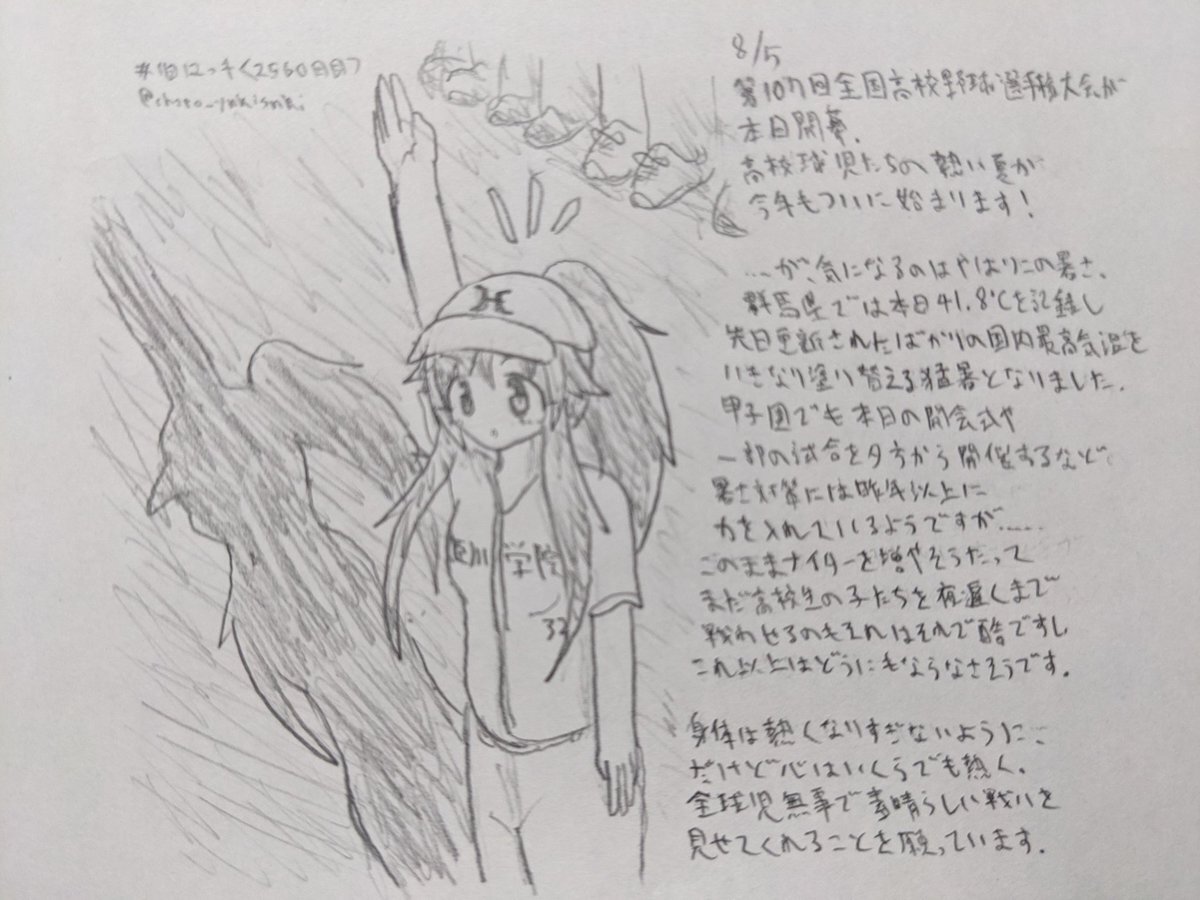 #1日1はっそく2560日目
8/5
第107回全国高校野球選手権大会が
本日開幕.
高校球児たちの熱い夏が
今年もついに始まります!
……が、気になるのはやはりこの暑さ.
群馬県では本日41.8℃を記録し
先日更新されたばかりの国内最高気温を
いきなり塗り替える猛暑となりました.
甲子園でも本日の開会式や
一部の試合を夕方から開催するなど
暑さ対策には昨年以上に
力を入れているようですが……
このままナイターを増やそうだって
まだ高校生の子たちを夜遅くまで
戦わせるのもそれはそれで酷ですし
これ以上はどうにもならなさそうです.
身体は熱くなりすぎないように…
だけど心はいくらでも熱く.
全球児無事で素晴らしい戦いを
見せてくれることを願っています.
学院
32